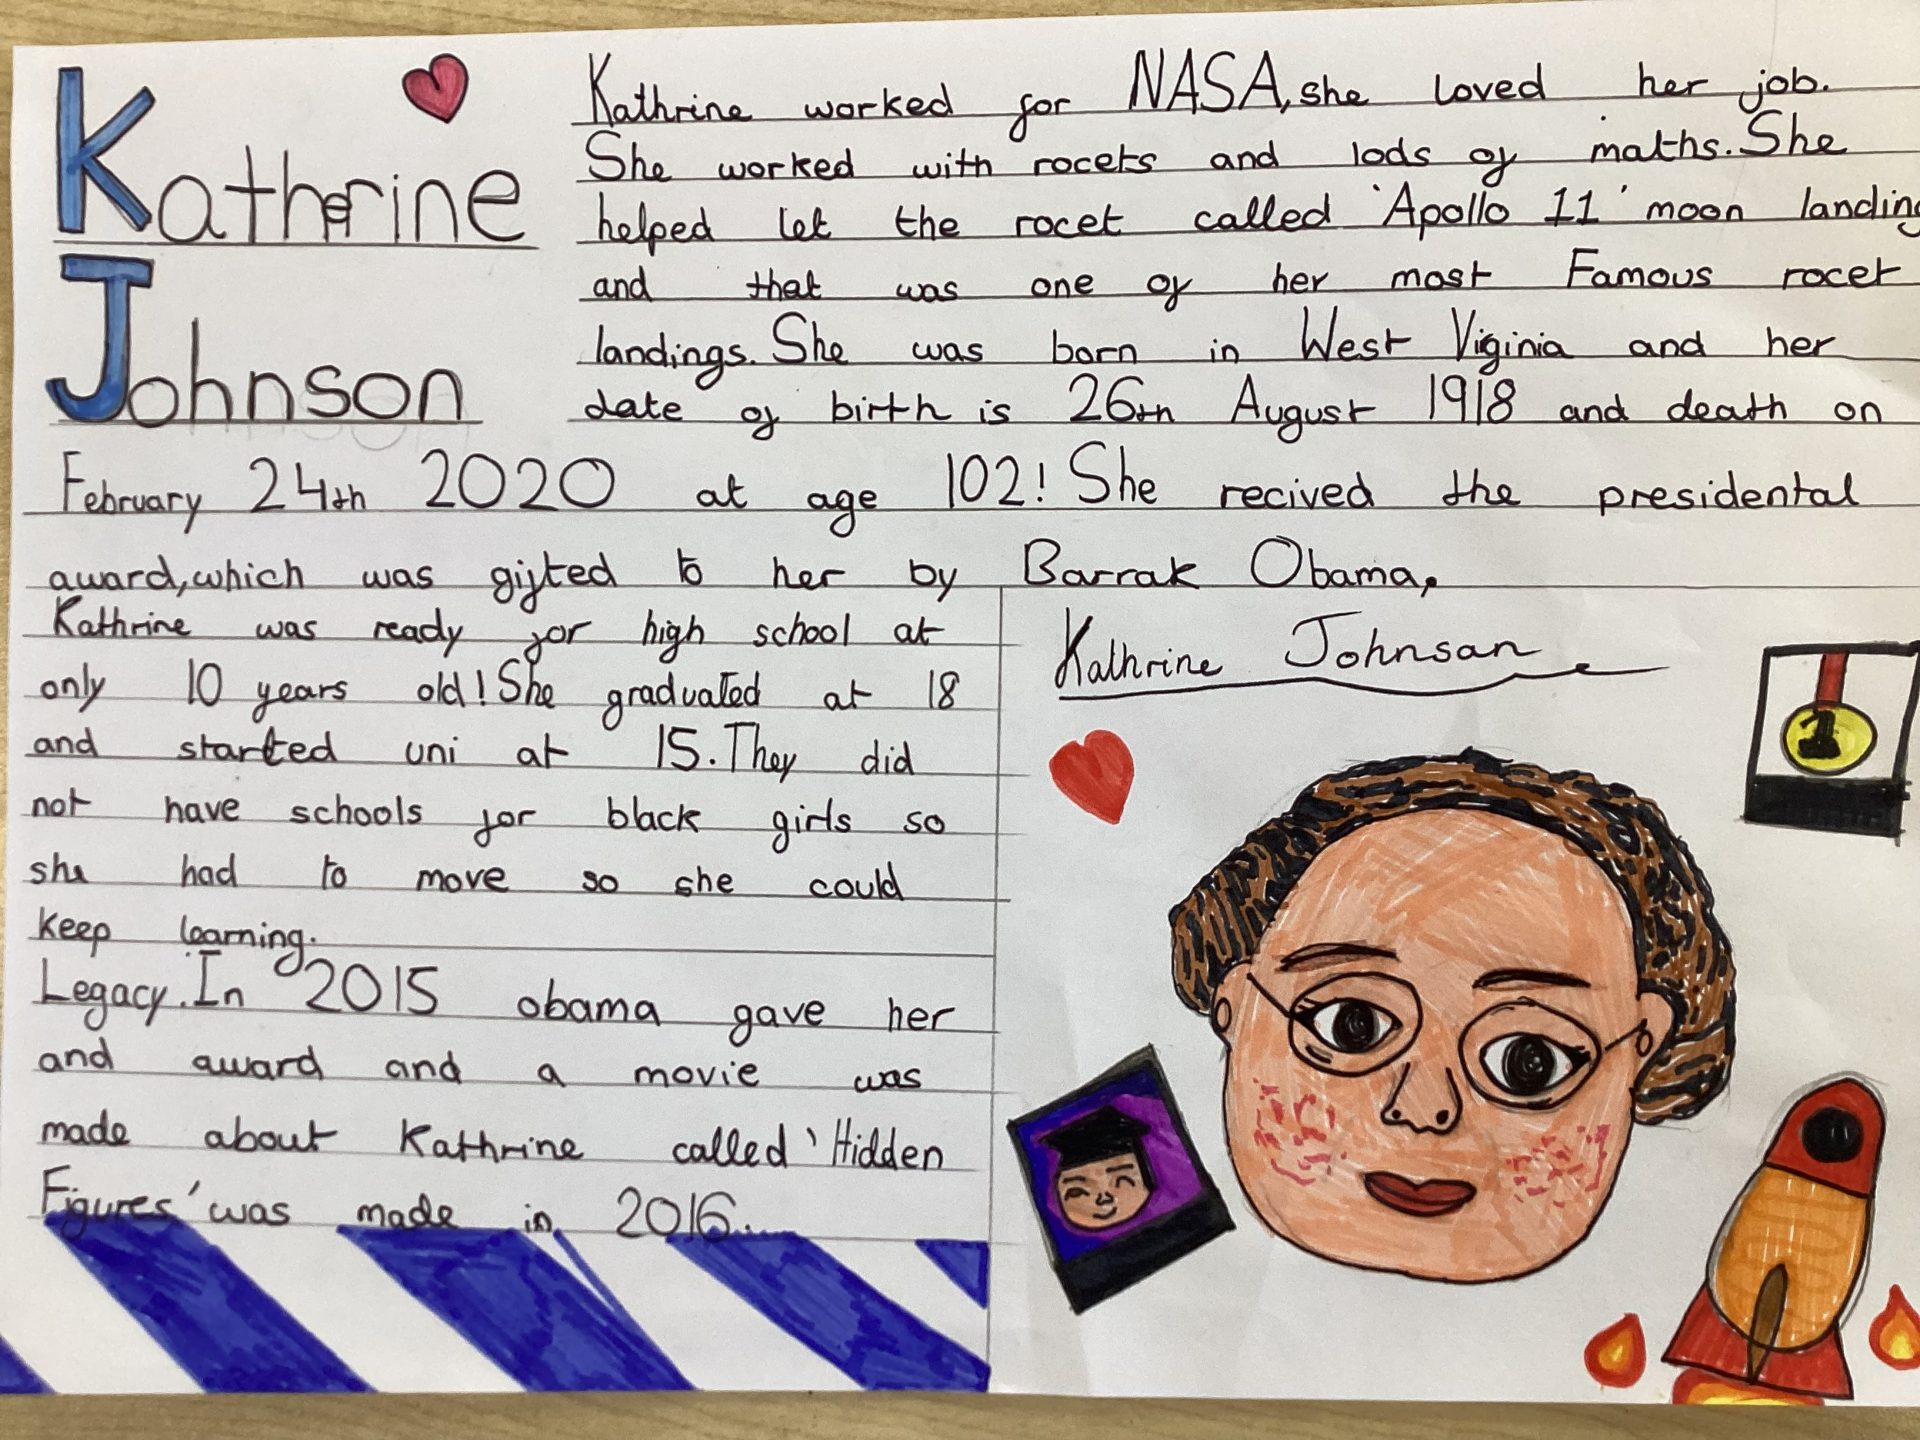 Katherine
Johnson
Kathrine worked for NASA, she loved her job.
She worked with rocets and lods of maths. She
helped let the rocet called 'Apollo 11' moon landing
and that was one of her most Famous rocet
landings. She was born in West Viginia and her
date of birth is 26th August 1918 and death on
February 24th 2020 at age 102! She recived the presidental
award, which was gifted to her by Barrak Obama,
Kathrine was ready for high school at
only 10 years old! She graduated at 18
and started uni at 15. They did
not have schools for black girls so
she had to move so she could
keep learning.
Legacy. In 2015 obama gave her
and award and a movie was
made about Kathrine called 'Hidden
Figures' was made in 2016.
Kathrine Johnsan
1